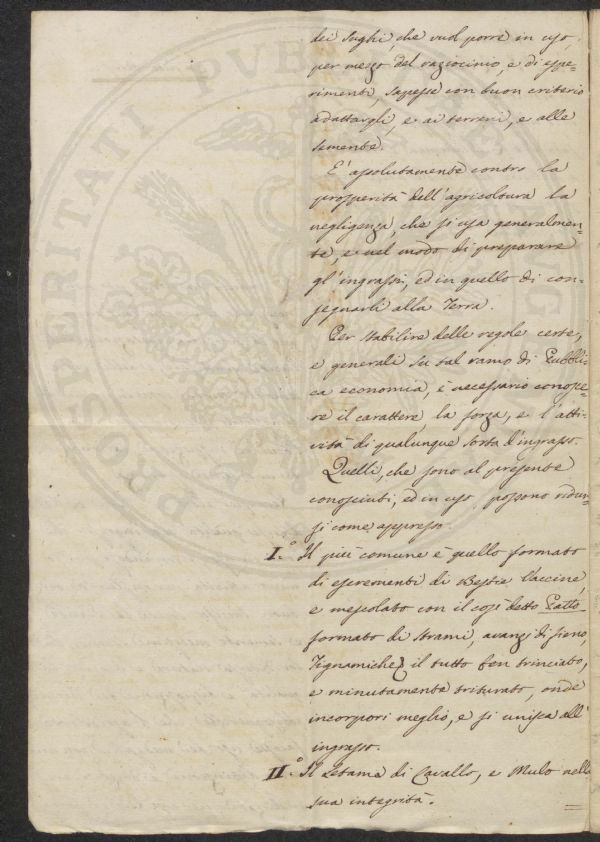 dei sughi, che vuol porre in uso,
per mezzo del raziocinio, e di espe-
rimenti, sapesse con buon criterio
adattargli, e ai terreni, e alle
semente.
E' assolutamente contro la
prosperità dell'agricoltura la
negligenza, che si usa generalmen-
te, e nel modo di preparare
gl'ingrassi, ed in quello di con-
segnarli alla Terra.
Per stabilire delle regole certe,
e generali su tal ramo di Pubbli-
ca economia, è necessario conosce-
re il carattere, la forza, e l'atti-
vità di qualunque sorta d'ingrasso.
Quelli, che sono al presente
conosciuti, ed in uso, possono ridur-
si come appresso.
I.° Il più comune è quello formato
di escrementi di Bestie Vaccine,
e mescolato con il così detto Patto
formato di strami, avanzi di fieno,
il tutto ben trinciato,
e minutamente triturato, onde
incorpori meglio, e si unisca all'
ingrasso.
II.° Il Letame di Cavallo, e Mulo nella
sua integrità.
PROSPERITATI PUBLICAE